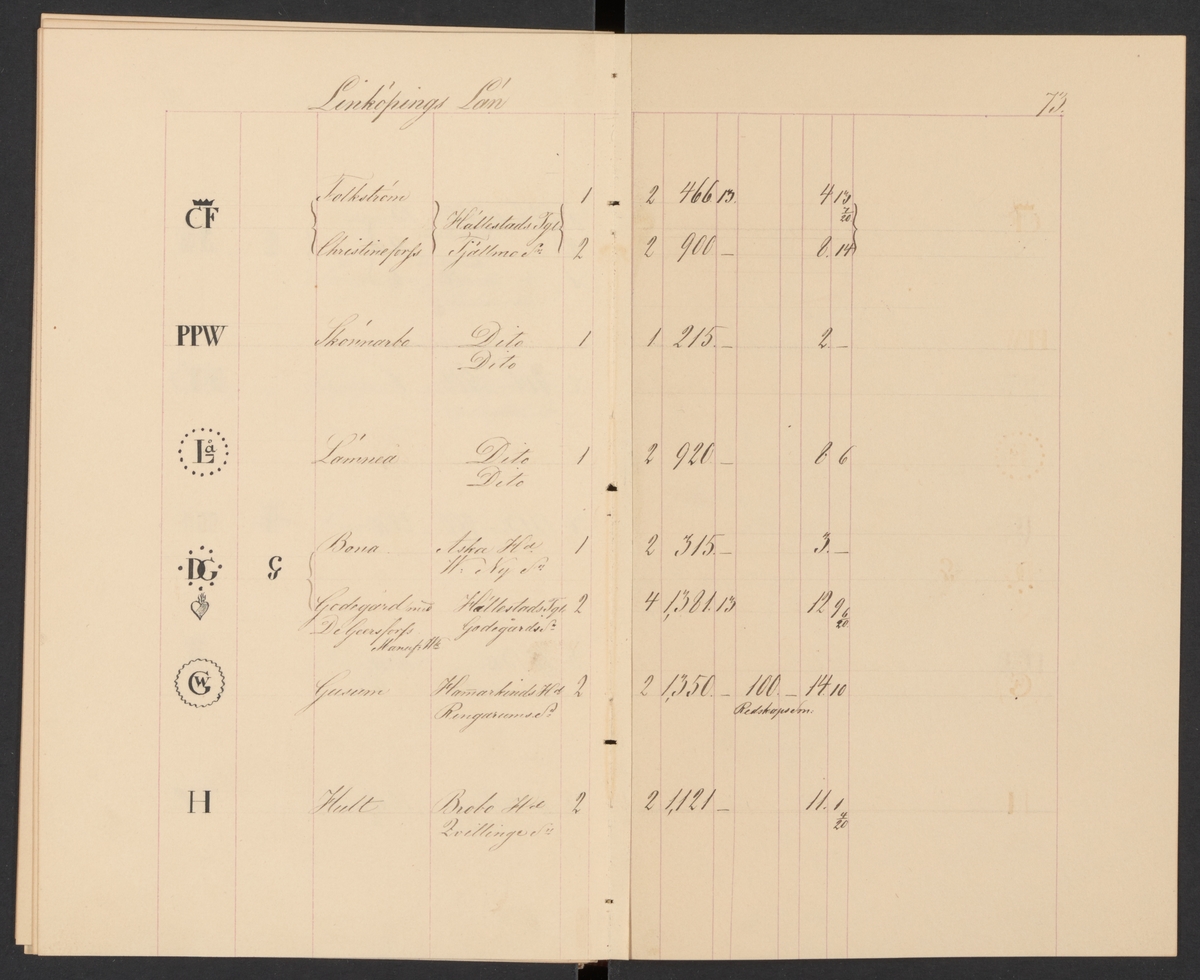 Linköpings Län 73.
CF Folkström 1 2 466 13. 4 13 7/20
Hällestads Tgl
Christineforss Tjällmo Sn 2 2 900 — 8. 14
PPW Skönnarbo Dito 1 1 215. — 2. —
Dito
Lå Lämneå Dito 1 2 920 — 8 6
Dito
Bona Aska Hd 1 2 315. — 3. —
DG G W. Ny Sn
Godegård med Hällestads Tgl 2 4 1,381. 13 12 9 6/20
De Geersforss Godegårds Sn
GW Gusum Hamarkinds Hd 2 2 1,350. — 100. — 14. 10
Ringarums Sn Redskapssm.
H Hult Brobo Hd 2 2 1,121 — 11. 1 4/20
Qvillinge Sn